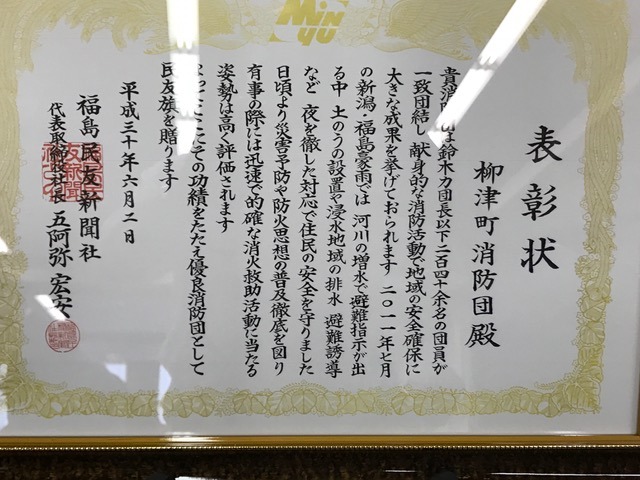 MiN
yu
表彰状
柳津町消防団殿
貴消防団は鈴木力団長以下二百四十余名の団員が
一致団結し 献身的な消防活動で地域の安全確保に
大きな成果を挙げておられます 二〇一一年七月
の新潟・福島豪雨では 河川の増水で避難指示が出
る中 土のうの設置や浸水地域の排水 避難誘導
など 夜を徹した対応で住民の安全を守りました
日頃より災害予防や防火思想の普及徹底を図り
有事の際には迅速で的確な消火救助活動に当たる
姿勢は高く評価されます
よってここにその功績をたたえ優良消防団として
民友旗を贈ります
平成三十年六月二日
福島民友新聞社
代表取締役社長 五阿弥 宏安